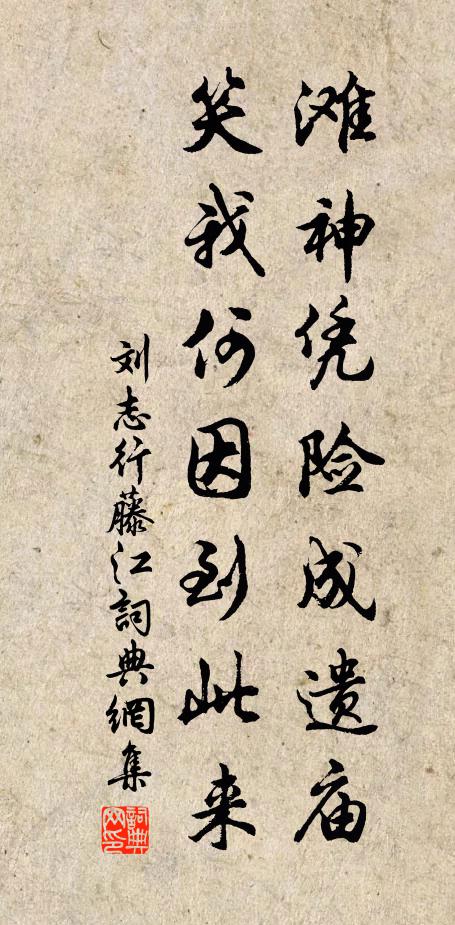 滩神凭险成遗庙
笑我何因到此来
刘志行藤江詞典網集
詞典網印